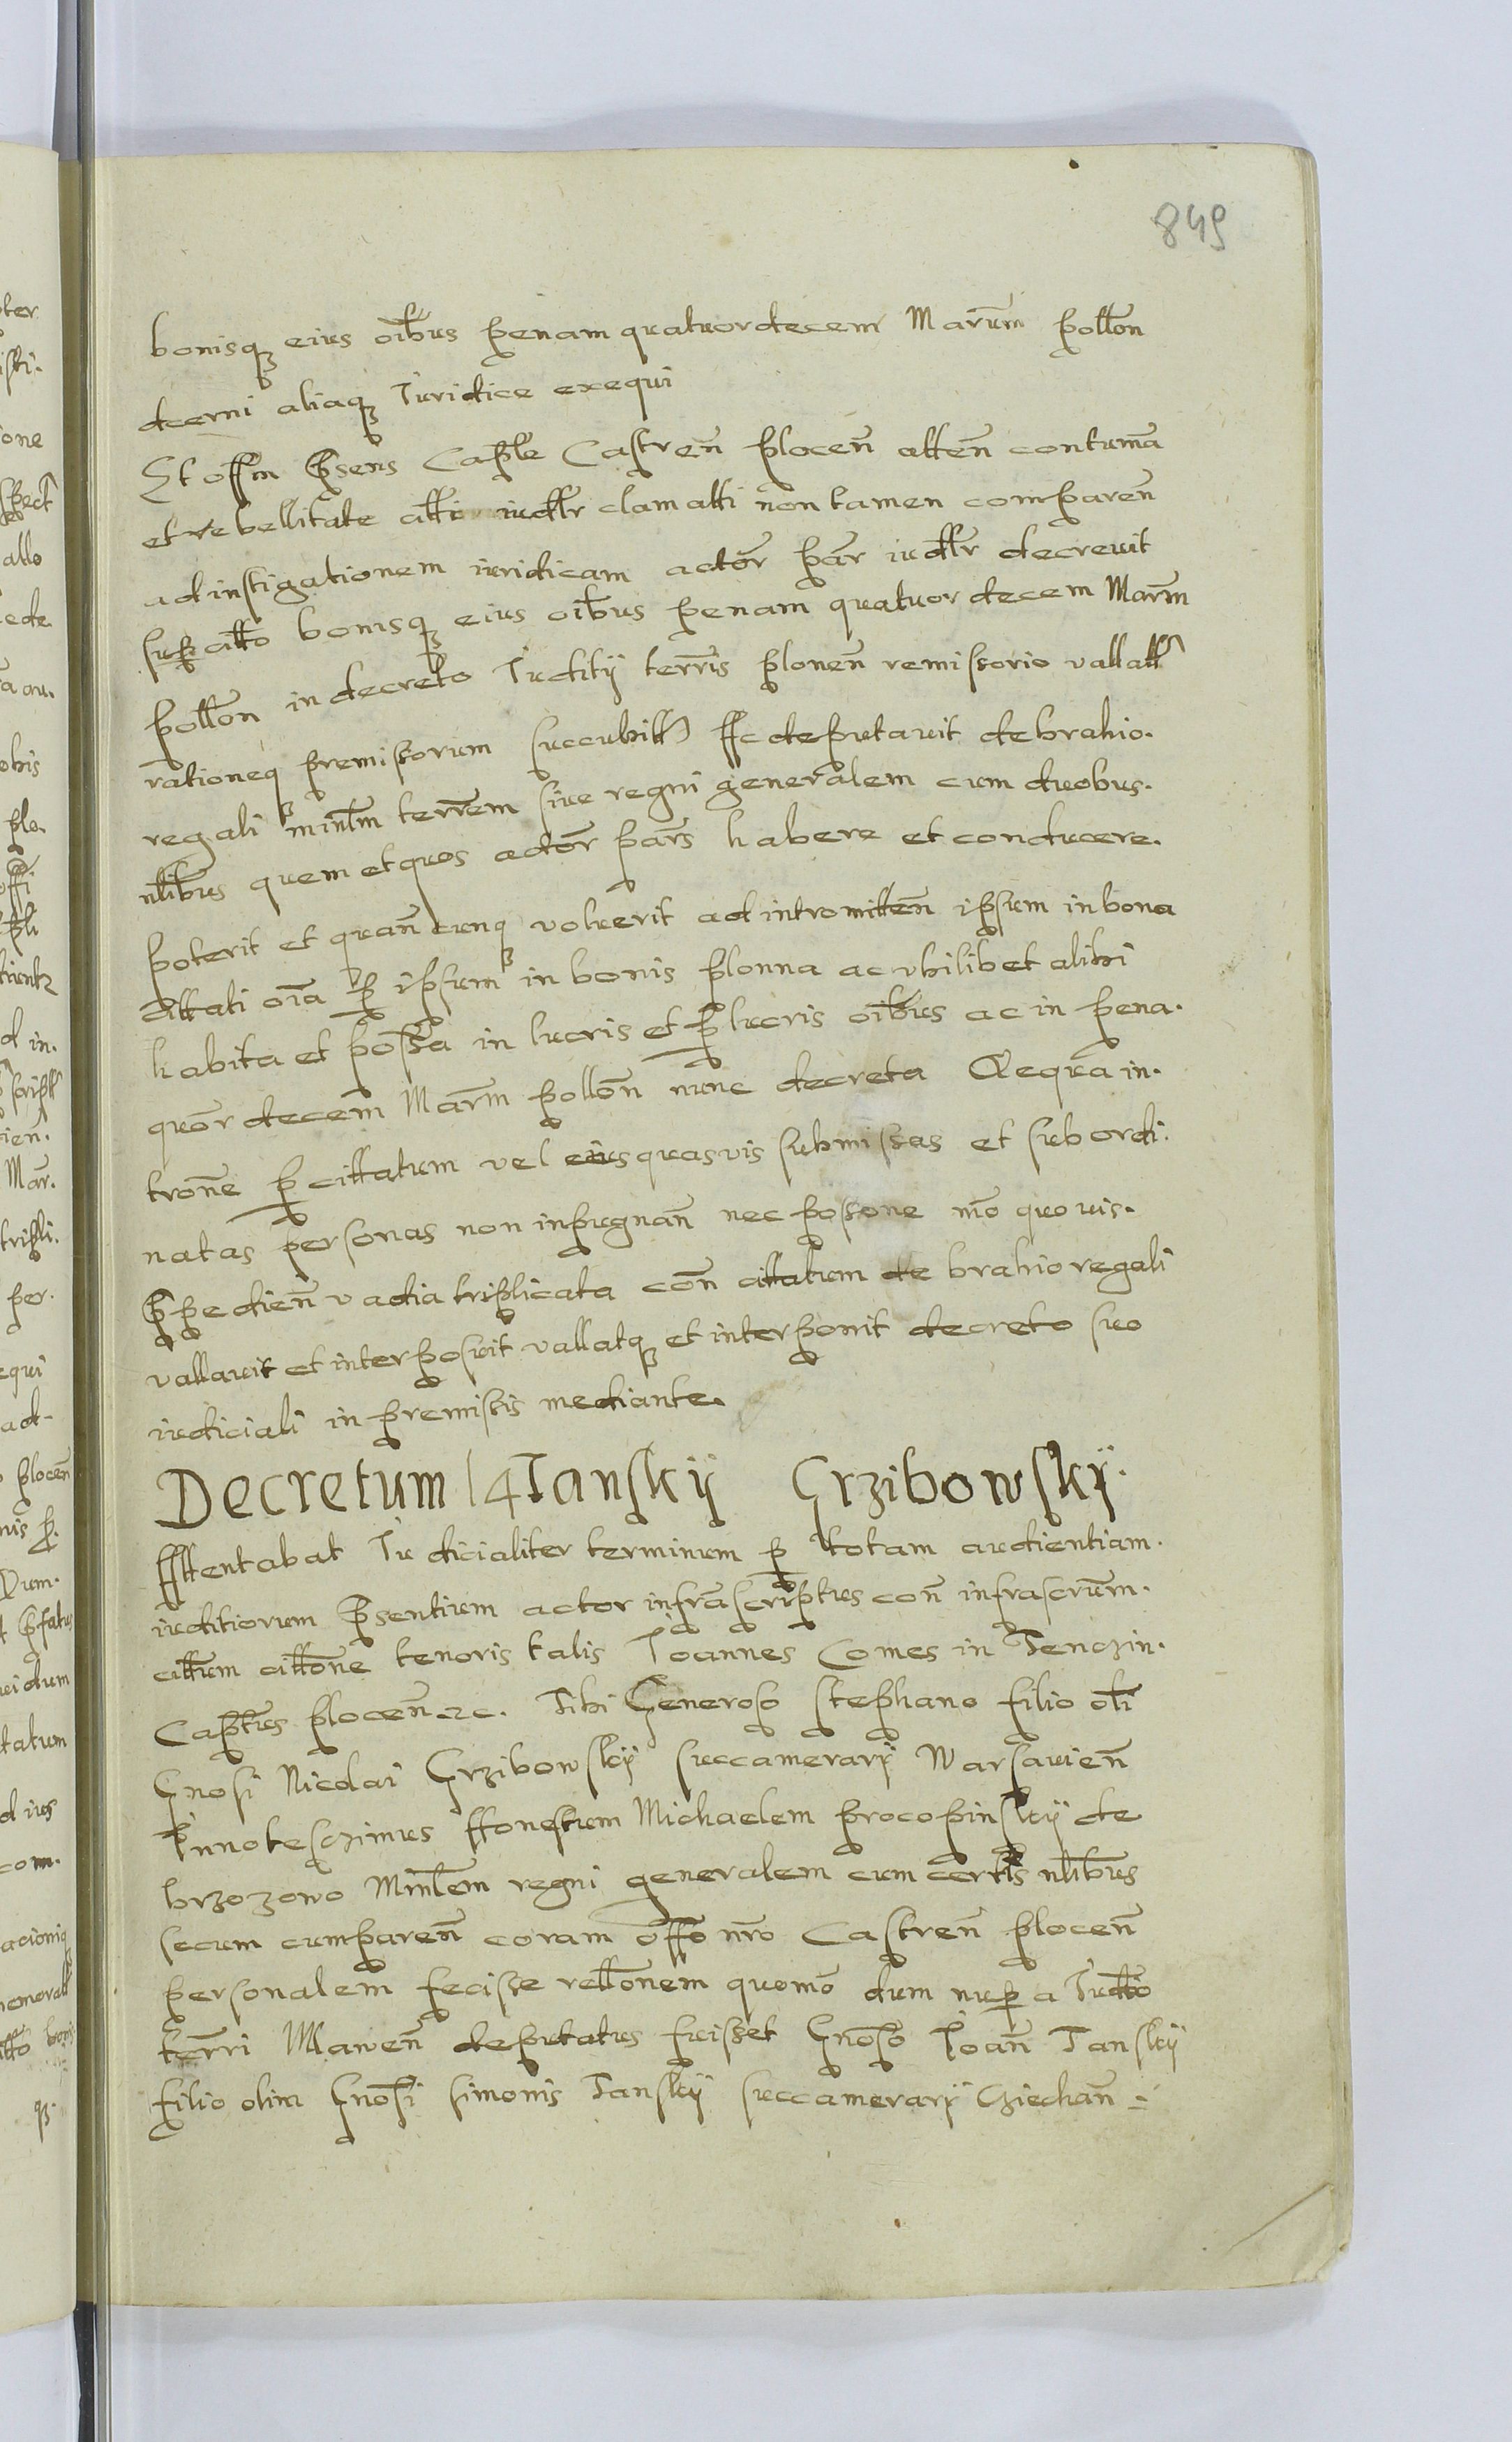 849
bonisq3 eius oibus penam quatuordecem Marum pollon
dcerni aliaq3 Iuridice exequi
Et offm Psens Caple Castren plocen atten contuma
et rebellitate citti iudlr clamatti non tamen comparen
ad instigationem iuridicam actor par iudlr decreuit
sup citto bonisq3 eius oibus penam quatuor decem Marm
pollon in decreto Iuditij terris plonen remissorio vallatt
rationeq premissorum succubitt Ac deputauit de brahio.
regali minlm terrem siue regni generalem cum duobus.
nlibus quem et quos actor pars habere et conducere.
poterit et quancunq voluerit ad intromitten ipsum in bona
cittati oia p ipsum in bonis plonna ac vbilibet alibi
habita et possa in lucris et p lucris oibus ac in pena.
quor decem Marm pollon nunc decreta Qequa in.
trone p cittatum vel eius quasvis submissas et subordi.
natas personas non inpugnan nec possone mo quouis.
Ppedien vadia triplicata con cittatum de brahio regali
vallauit et interposuit vallatq3 et interponit decreto suo
iudiciali in premissis mediante.
Decretum 14 Tanskij Grzibowskij.
Attentabat Iudicialiter terminum p totam audientiam.
iuditiorum Psentium actor infrascriptus con infrascrum.
cittum cittone tenoris talis Ioannes Comes in Tenczin.
Captus plocen 2c. Tibi Generoso Stephano filio oli
Gnosi Nicolai Grzibowskij succamerarij Warsauien
Innotesczimus Honestum Michaelem procopinskij de
brzozowo Minlem regni generalem cum certis nlibus
secum cumparen coram offo nro Castren plocen
personalem fecisse rellonem quomo dum nup a Iudtio
terri Mawen deputatus fuisset Gnoso Ioan Tanskij
filio olim Gnosi simonis Tanskij succamerarij Cziechan